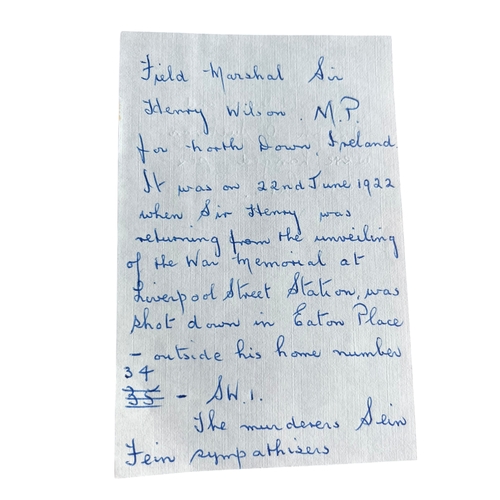 Field Marshal Sir
Henry Wilson. M.P.
for North Down, Ireland
It was on 22nd June 1922
when Sir Henry was
returning from the unveiling
of the War Memorial at
Liverpool Street Station, was
shot down in Eaton Place
- outside his home number
34
35 - SW.1.
The murderers Sein
Fein sympathisers